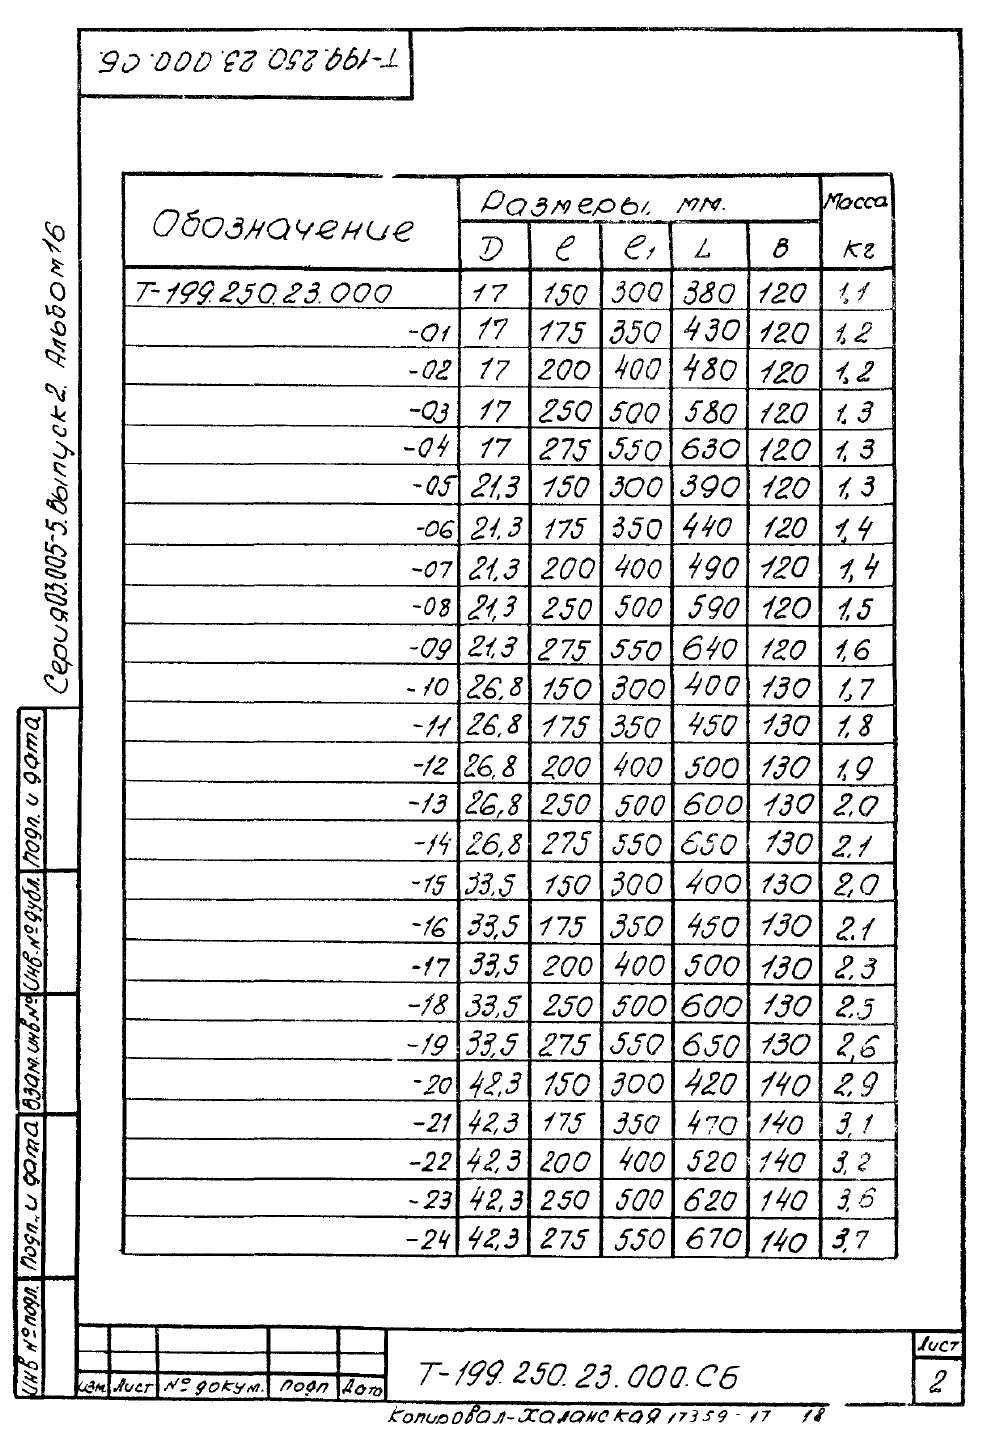 Т-199.250.23.000.СБ.
Серия 03.005-5. Выпуск 2. Альбом 16
Обозначение Размеры, мм. Масса
D ℓ ℓ1 L B кг
Т-199.250.23.000 17 150 300 380 120 1,1
-01 17 175 350 430 120 1,2
-02 17 200 400 480 120 1,2
-03 17 250 500 580 120 1,3
-04 17 275 550 630 120 1,3
-05 21,3 150 300 390 120 1,3
-06 21,3 175 350 440 120 1,4
-07 21,3 200 400 490 120 1,4
-08 21,3 250 500 590 120 1,5
-09 21,3 275 550 640 120 1,6
-10 26,8 150 300 400 130 1,7
-11 26,8 175 350 450 130 1,8
-12 26,8 200 400 500 130 1,9
-13 26,8 250 500 600 130 2,0
-14 26,8 275 550 650 130 2,1
-15 33,5 150 300 400 130 2,0
-16 33,5 175 350 450 130 2,1
-17 33,5 200 400 500 130 2,3
-18 33,5 250 500 600 130 2,5
-19 33,5 275 550 650 130 2,6
-20 42,3 150 300 420 140 2,9
-21 42,3 175 350 470 140 3,1
-22 42,3 200 400 520 140 3,2
-23 42,3 250 500 620 140 3,6
-24 42,3 275 550 670 140 3,7
Подп. и дата
Инв.№ дубл.
Взам.инв.№
Подп. и дата
Инв № подл.
Изм Лист № докум. Подп Дата
Т-199.250.23.000.Сб
Лист
2
Копировал-Халанская 17359-17 18